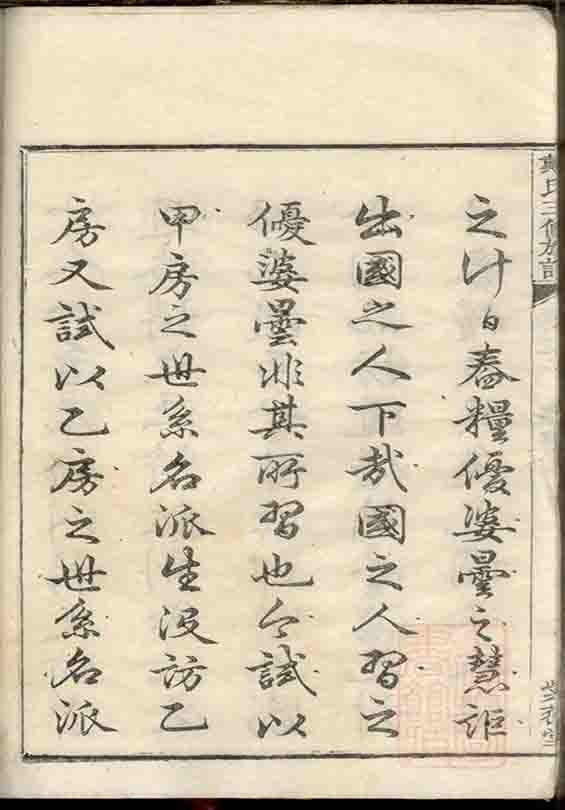 氏三修族譜
之計日舂糧優婆曇之慧詎
出國之人下哉國之人習之
優婆曇非其所習也今試以
甲房之世系名派生沒訪乙
房又試以乙房之世系名派